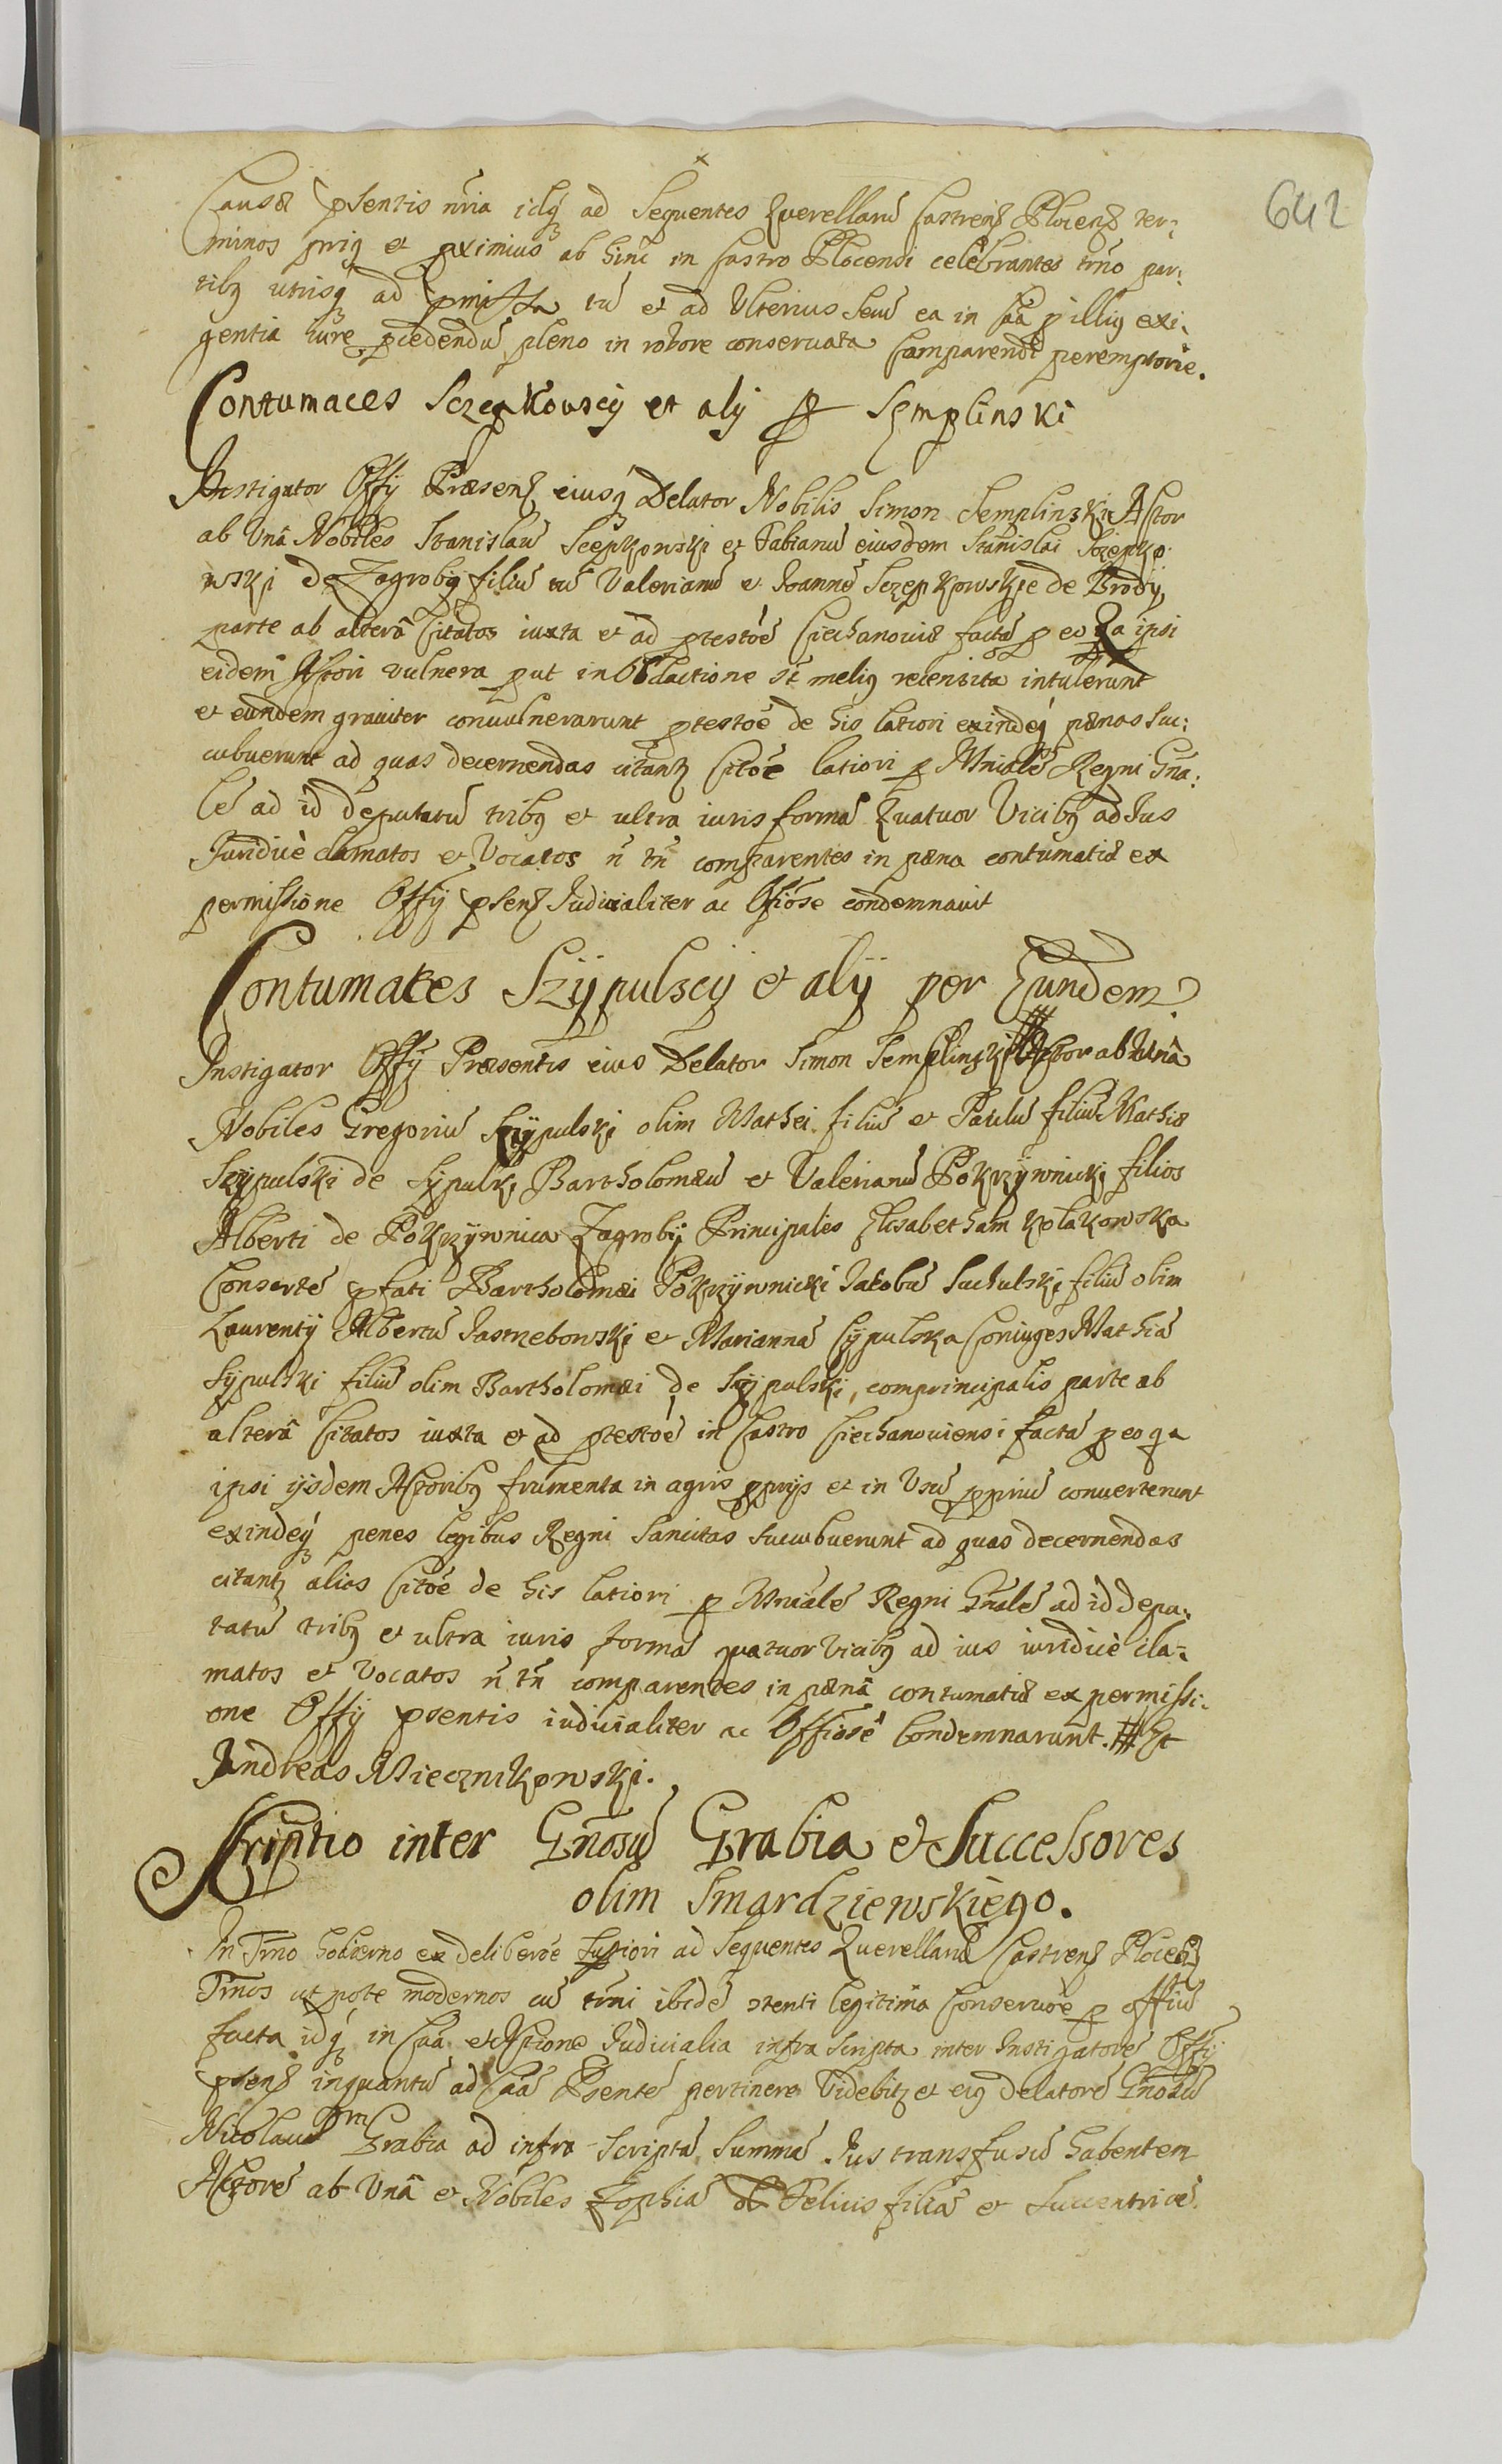 642
Causæ psentis nria idq ad Sequentes Querellarũ Castrens Plocens ter:
minos prig et pximius ab hinc in Castro Plocensi celebrantes tmo par:
tibg utrisq ad pmissa tũ et ad Ulterius Seu ea in Caa p illig exi:
gentia iure pcedendũ pleno in robore conservata Comparendũ peremptorie.
Contumaces Sczepkouscy et alij p Semplinski
Instigator Offy Præsens eiusq Delator Nobilis Simon Semplinski Actor
ab Unâ Nobiles Stanislaũ Scepkowski et Fabianũ eiusdem Stanislai Sczepko
wski de Zagroby filiũ tũ Valerianũ et Joannẽ Sczepkowskie de Brody
parte ab alterâ Citatos iuxta et ad ptestõe Ciechanoviæ factã p eo Qa ipsi
eidem Actori vulnera put in Obductione st melig recensita intulerunt
et eundem graviter convulnerarunt ptestõe de his latiori exindeq pænas suc:
cubuerunt ad quas decernendas citantr Citõe latiori p Mnialẽ Regni Gna:
lẽ ad id deputatũ tribg et ultra iuris formã Quatuor Vicibg ad Jus
Juridice clamatos et Vocatos ñ tñ comparentes in pæna contumatiæ ex
permissione Offy psens Judicialiter ac Offiose condemnavit
Contumaces Szypulscy et alij per Eundem
Instigator Offy Præsentis eius Delator Simon Semplinski # Actor ab Unâ
Nobiles Gregoriũ Szypulski olim Mathei filiũ et Paulũ filiũ Mathiæ
Szypulski de Sypulki Bartholomæũ et Valerianũ Pokrzywnicki filios
Alberti de Pokrzywnica Zagroby Principales Elisabetham Kolakowska
Consortẽ pfati Bartholomæi Pokrzywnicki Jacobũ Suchulski filiũ olim
Laurentij Albertũ Jastrzebowski et Mariannã Cypulska Coniuges Mathiã
Sypulski filiũ olim Bartholomæi de Szypulski, comprincipalis parte ab
alterâ Citatos iuxta et ad ptestõe in Castro Ciechanoviensi factã p eo qa
ipsi ijsdem Actoribg frumenta in agris pprijs et in Usũ ppriũ converterunt
exindeq penes legibus Regni Sancitas succubuerunt ad quas decernendas
citantr alias Citõe de his latiori p Mnialẽ Regni Gnalẽ ad id depu:
tatũ tribg et ultra iuris formã quatuor vicibg ad ius iuridice cla:
matos et Vocatos ñ tñ comparentes in pænâ contumatiæ ex permissi:
one Offy psentis iudicialiter ac Offiosẽ Condemnarunt. # Et
Andreas Miecznikowski.
Ascriptio inter Gnosũ Grabia et Successores
olim Smardziewskiego.
In Tmo hodierno ex deliberõe fusiori ad Sequentes Querellarũ Castrens Plocens
Tmos ut pote modernos cũ tmi ibidẽ stenti legitima Conservõe p offiũ
facta idq in Caa et Actione Judicialia infra scripta inter Instigatorẽ Offy
psens inquantũ ad Caã Psentẽ pertinere Videbitr et eig delatorẽ Gnosũ
Nicolaũ Grabia ad infra Scriptã Summã Jus transfusũ habentem
Actorẽ ab Unâ et Nobiles Zophiã Felicis filiã et Succentricẽ